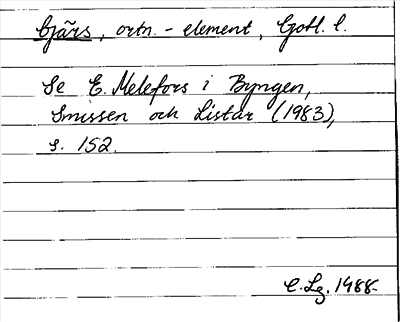 Gjärs, ortn.-element, Gotl. l.
Se E. Melefors i Byngen,
Smissen och Listar (1983),
s. 152.
C. Lg. 1988.